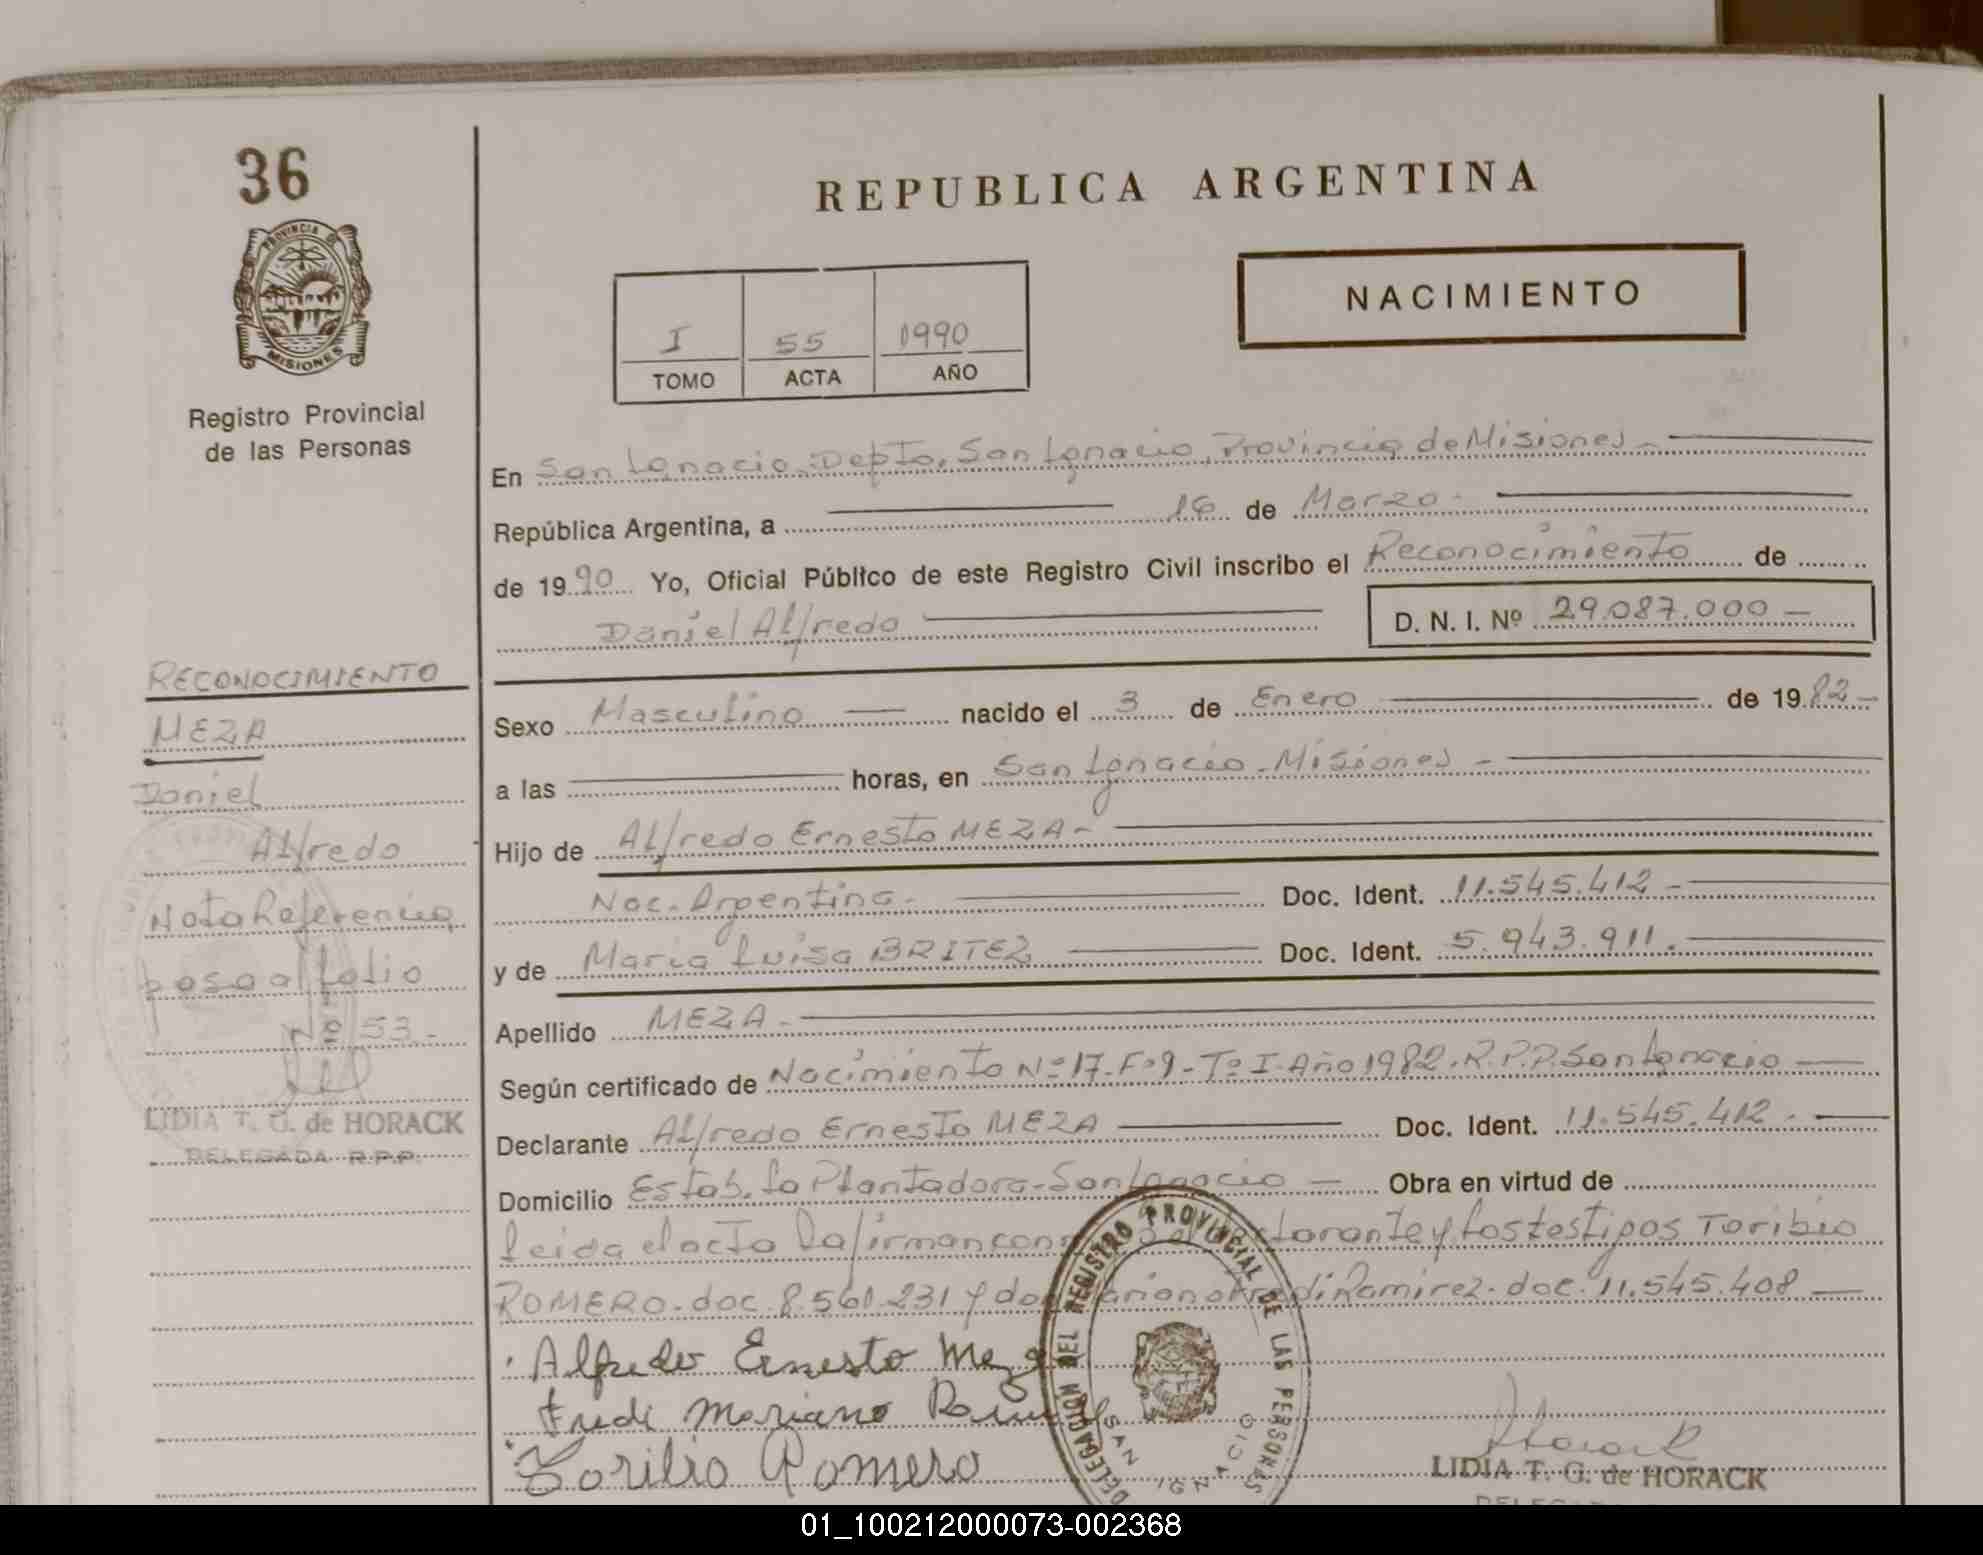 36
PROVINCIA DE
MISIONES
Registro Provincial
de las Personas
REPUBLICA ARGENTINA
NACIMIENTO
I 55 1990
TOMO ACTA AÑO
En San Ignacio, Depto. San Ignacio, Provincia de Misiones
República Argentina, a 16 de Marzo
de 1990 Yo, Oficial Público de este Registro Civil inscribo el Reconocimiento de
Daniel Alfredo D. N. I. Nº 29.087.000
Sexo Masculino nacido el 3 de Enero de 1982
a las horas, en San Ignacio - Misiones
Hijo de Alfredo Ernesto MEZA
Nac. Argentina Doc. Ident. 11.545.412
y de Maria Luisa BRITEZ Doc. Ident. 5.943.911
Apellido MEZA
Según certificado de Nacimiento Nº 17-Fº9-Tº I-Año 1982.R.P.P. San Ignacio
Declarante Alfredo Ernesto MEZA Doc. Ident. 11.545.412
Domicilio Estab. La Plantadora-San Ignacio Obra en virtud de
leida el acta la firman con y los testigos Toribio
ROMERO-doc. 8.560.231 y Ramirez-doc. 11.545.408
Alfredo Ernesto Meza
Fredi Mariano
Toribio Romero
DELEGACION DEL REGISTRO PROVINCIAL DE LAS PERSONAS
SAN IGNACIO
LIDIA T. G. de HORACK
RECONOCIMIENTO
MEZA
Daniel
Alfredo
Nota Referencia
pasa al folio
Nº 53
LIDIA T. G. de HORACK
DELEGADA R.P.P.
01_100212000073-002368